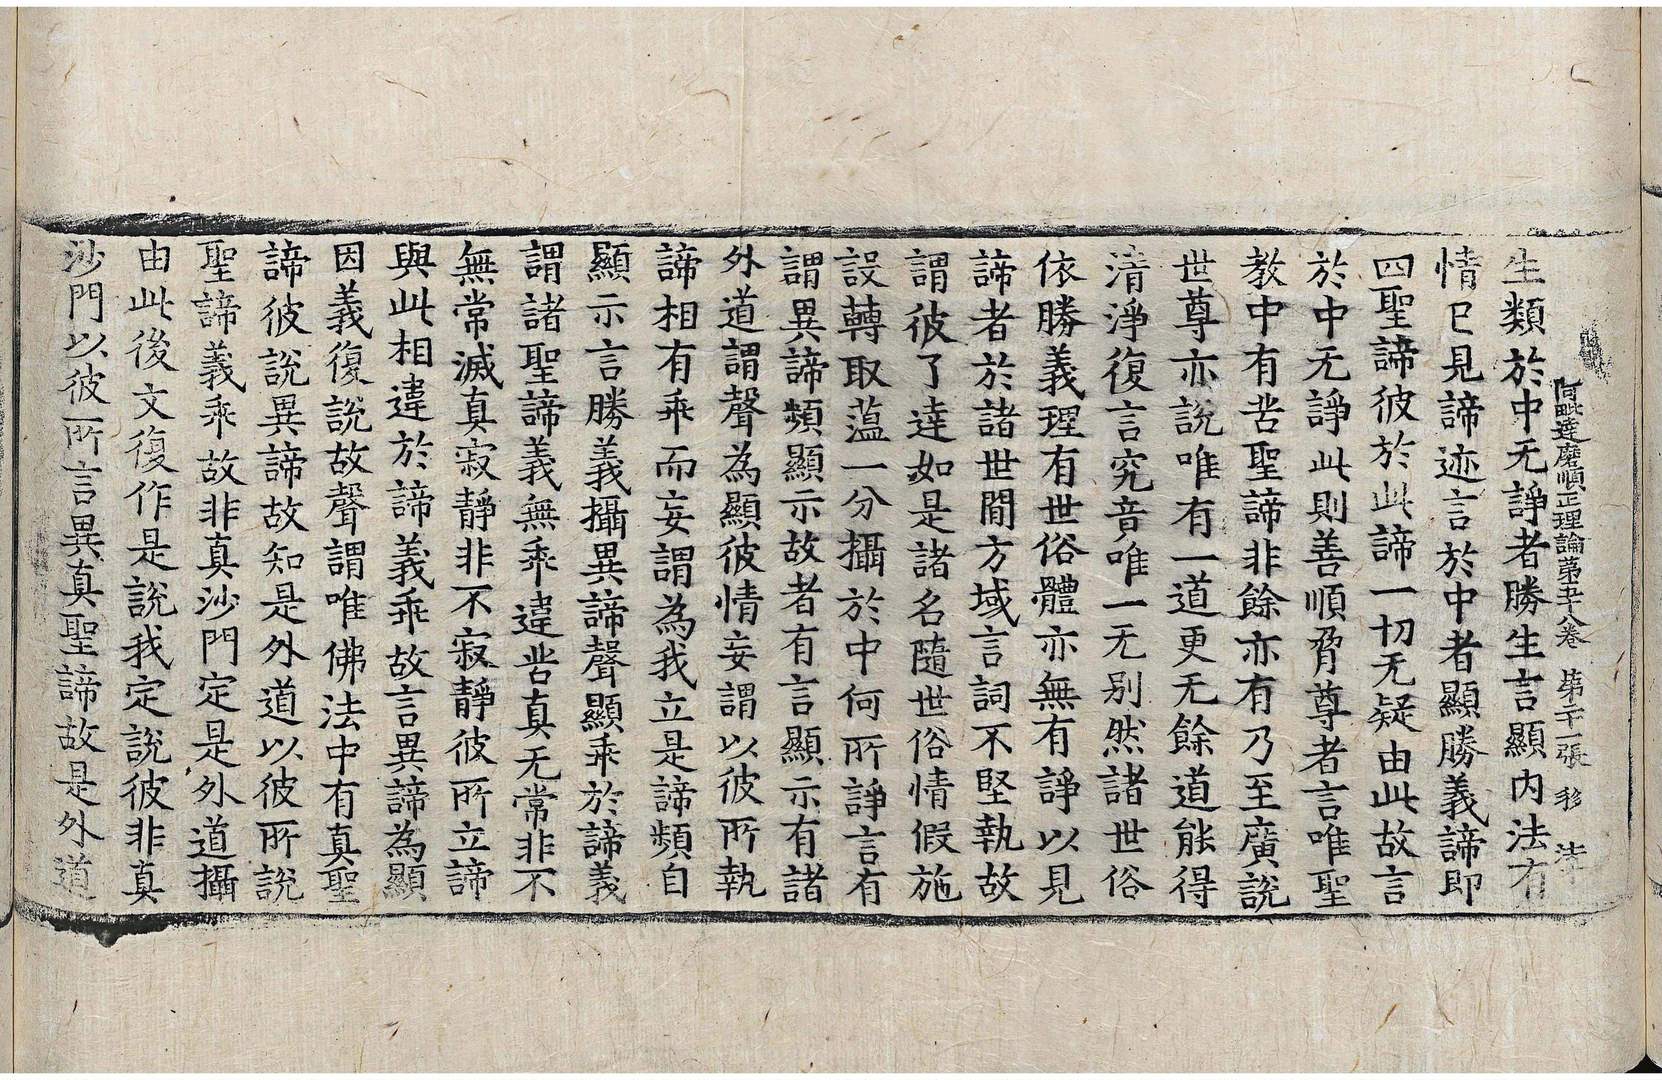 阿毗達磨順正理論第五十八卷 第二十一張 移
生類於中无諍者勝生言顯內法有
情已見諦迹言於中者顯勝義諦即
四聖諦彼於此諦一切无疑由此故言
於中无諍此則善順脅尊者言唯聖
教中有苦聖諦非餘亦有乃至廣說
世尊亦說唯有一道更无餘道能得
清淨復言究音唯一无別然諸世俗
依勝義理有世俗體亦無有諍以見
諦者於諸世間方域言詞不堅執故
謂彼了達如是諸名隨世俗情假施
設轉取薀一分攝於中何所諍言有
謂異諦頻顯示故者有言顯示有諸
外道謂聲為顯彼情妄謂以彼所執
諦相有乖而妄謂為我立是諦頻自
顯示言勝義攝異諦聲顯乖於諦義
謂諸聖諦義無乖違苦真无常非不
無常滅真寂靜非不寂靜彼所立諦
與此相違於諦義乖故言異諦為顯
因義復說故聲謂唯佛法中有真聖
諦彼說異諦故知是外道以彼所說
聖諦義乖故非真沙門定是外道攝
由此後文復作是說我定說彼非真
沙門以彼所言異真聖諦故是外道